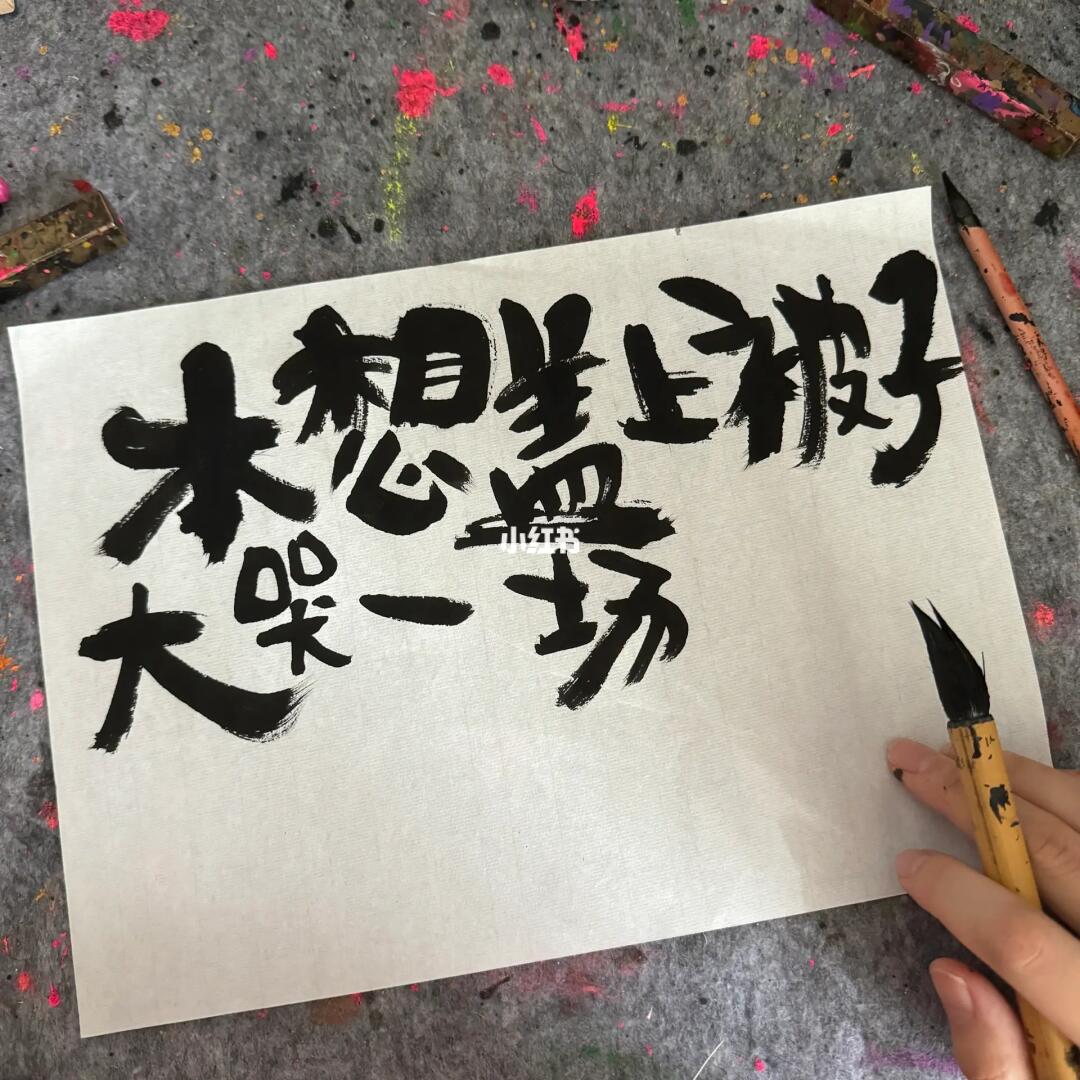 本想盖上被子
大哭一场
小红书